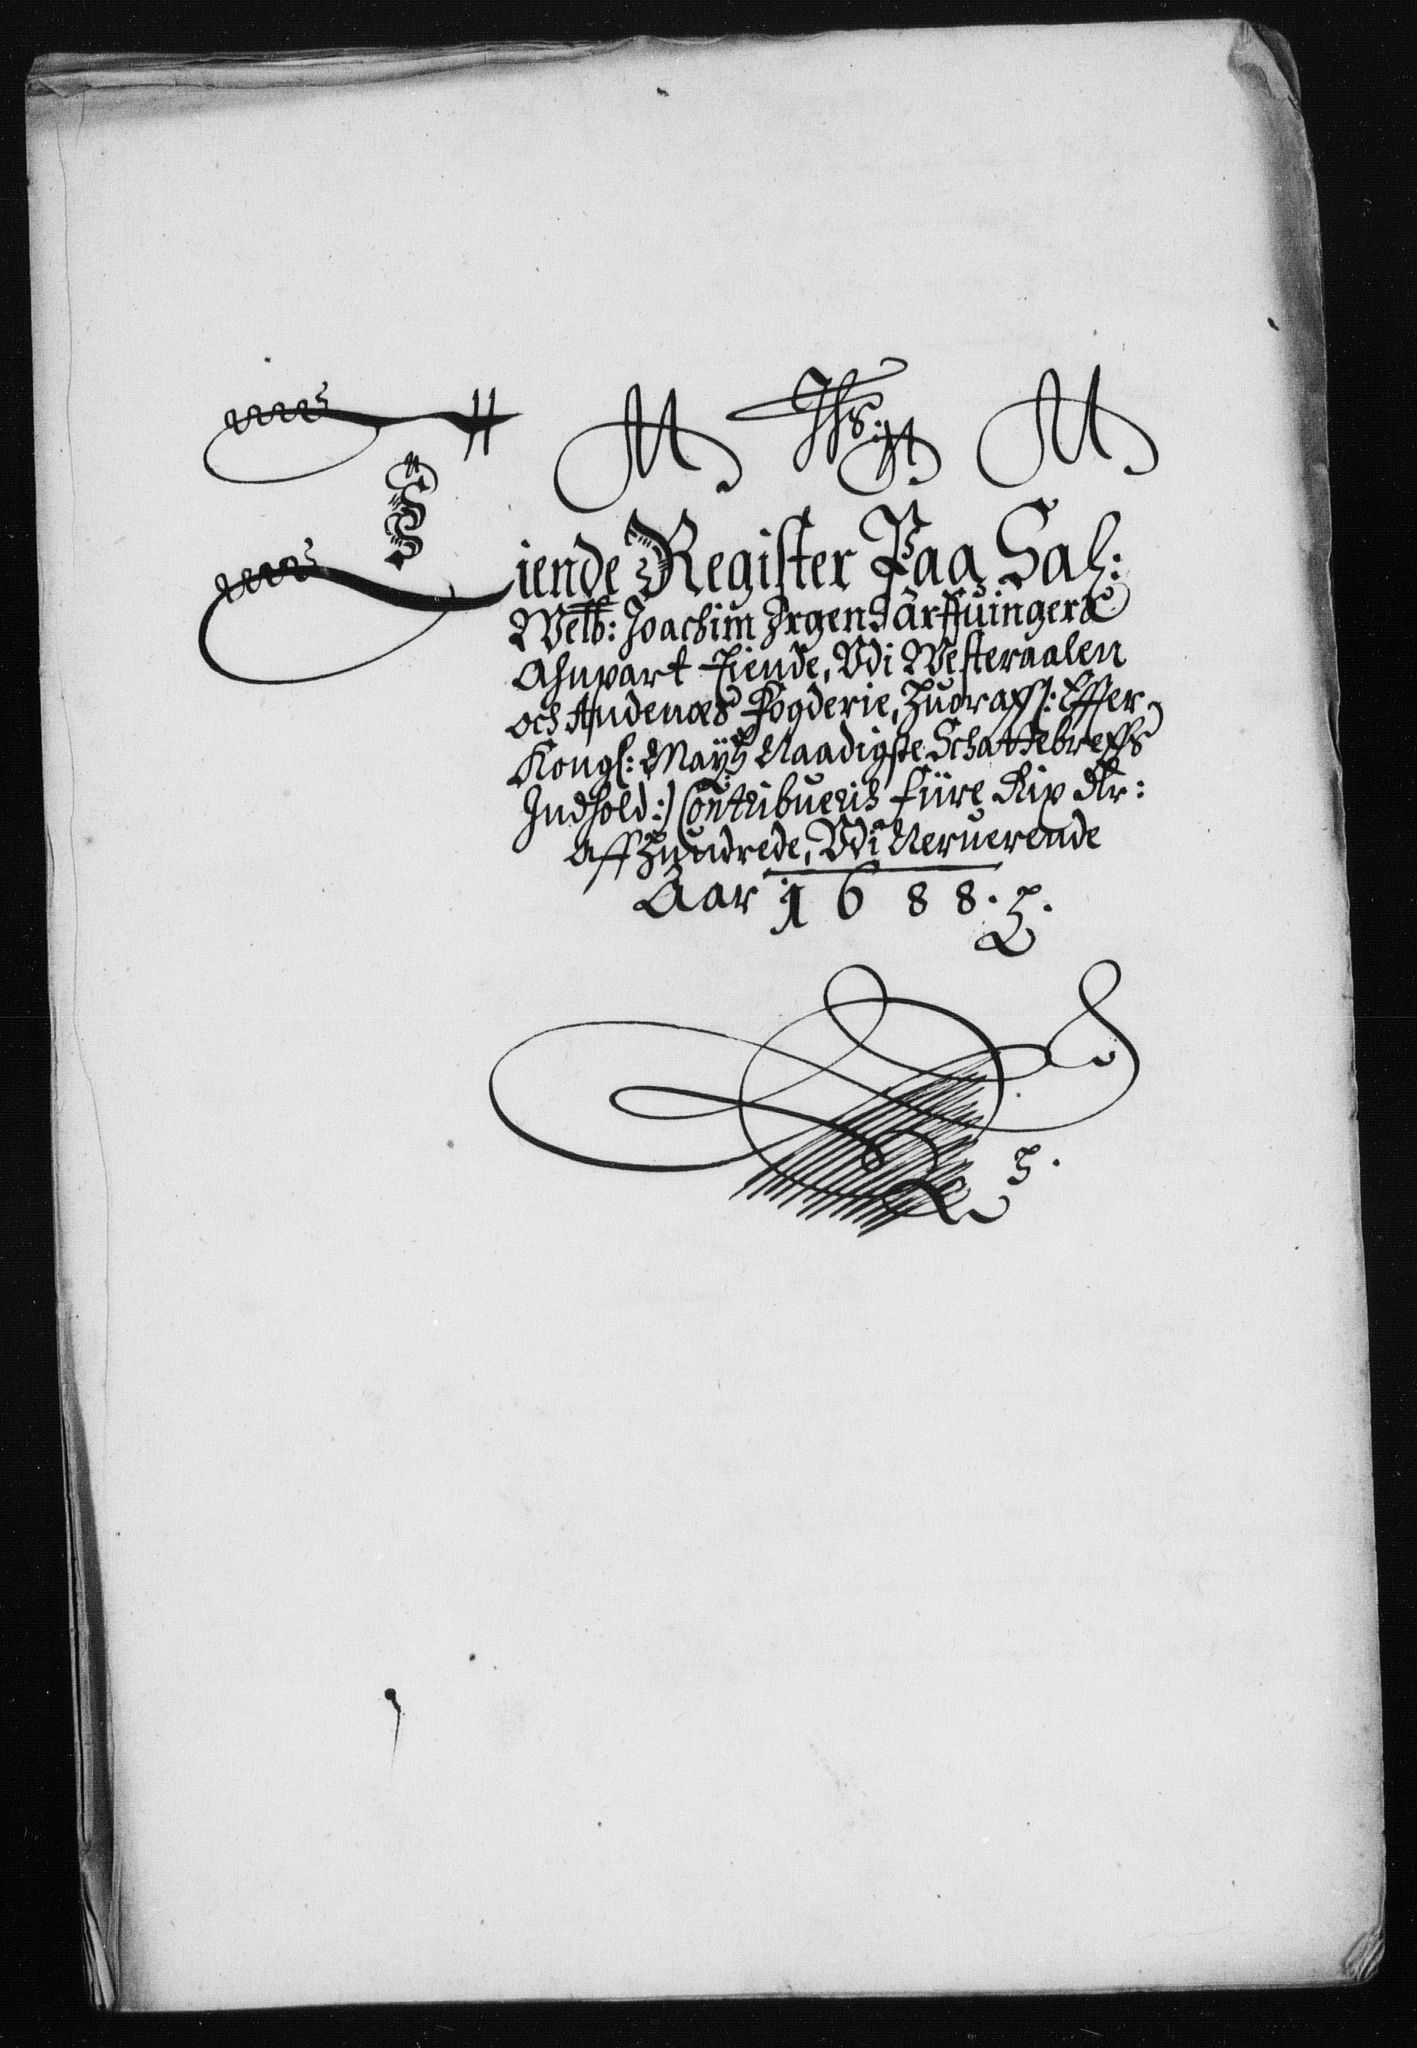 Tiende Register Paa Sal:
Welb: Joachim Irgens Arffuingers
Anpart Tiende, Udi Westeraalen
och Andenæs Fogderie, Huoraff /: Effter
Kongl: Mayts Naadigste Schattebreffs
Indhold :/ Contribueris Fiire Rix dlr:
aff Hundrede, Udi Neruerende
Aar 1688.